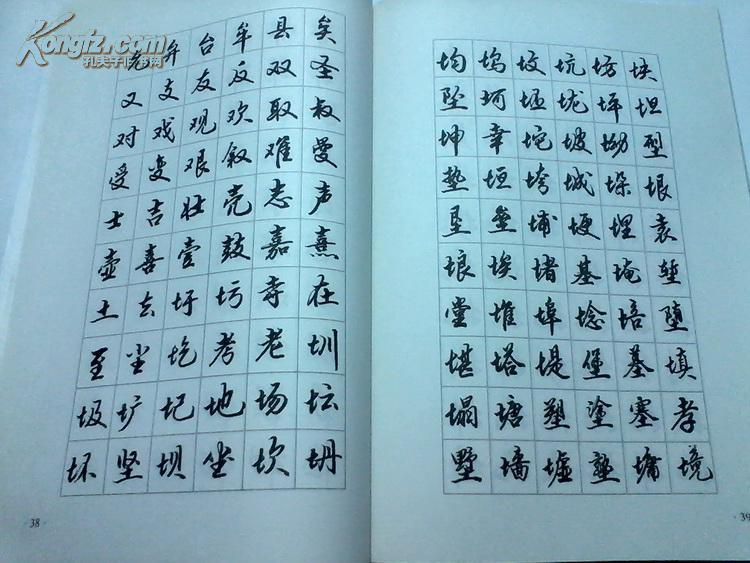 Kongfz.com
孔夫子旧书网
允弁台牟县矣
又支友反双圣
对戏观欢取叔
受变艰叙难曼
士吉壮壳志声
壶喜壹鼓嘉熹
土去圩圬寺在
至坐圪考老圳
圾圹圮地场坛
坏坚坝坐坎坍
·38·
均坞坟坑坊块
坠坷垭垅坪坦
坤幸坨坡坳型
垫垣垮城垛垠
垦垒埔埂埋袁
埌埃堵基埯堑
堂堆埠埝培堕
堪塔堤堡墓填
塌塘塑塗塞孝
墅墙墟塾墉境
·39